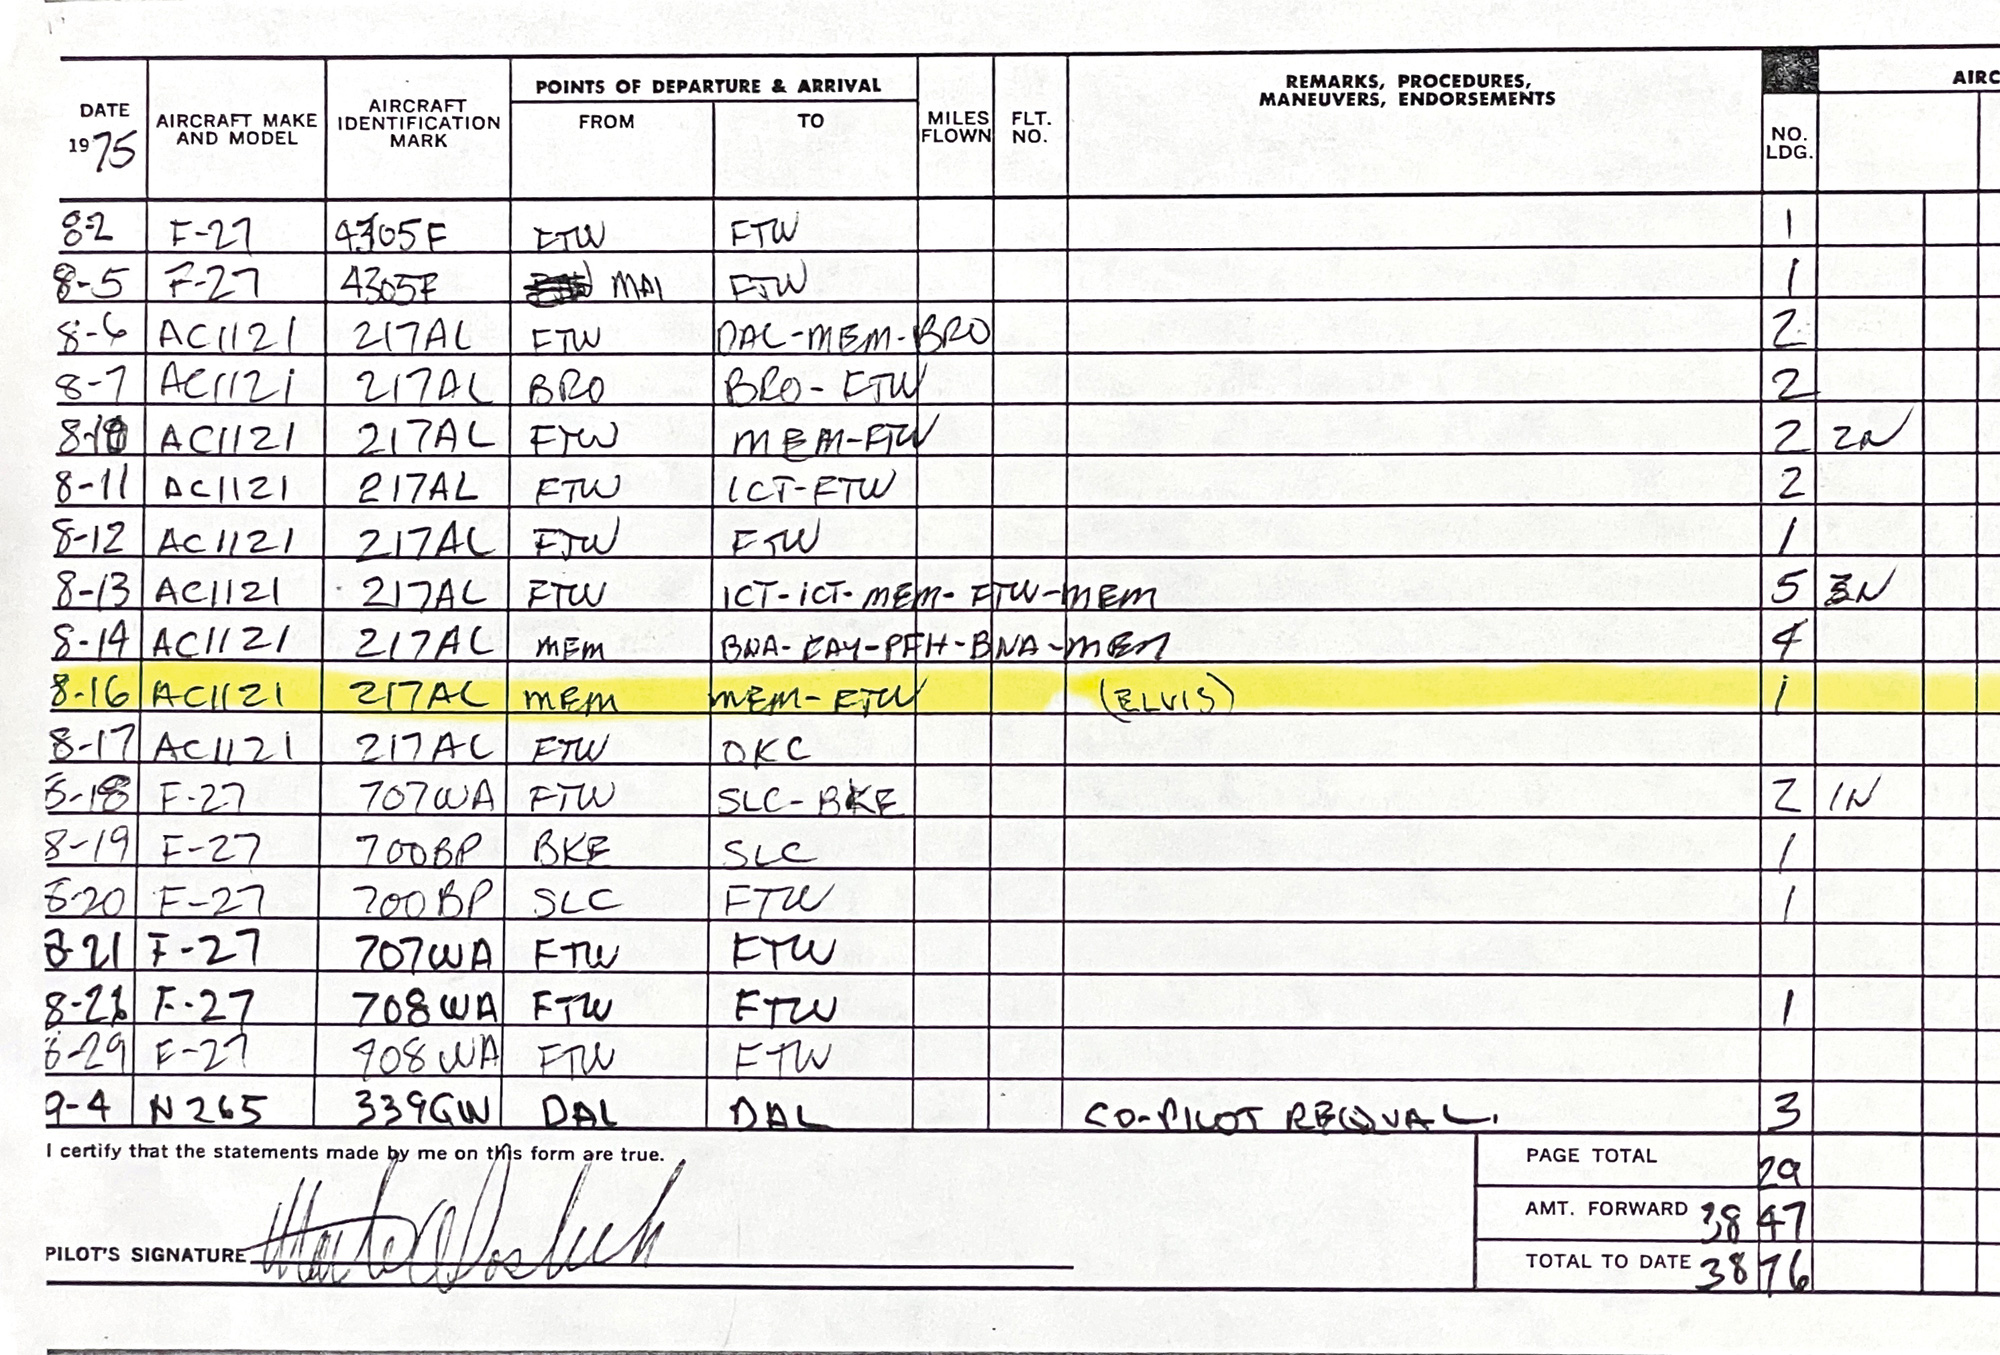 POINTS OF DEPARTURE & ARRIVAL REMARKS, PROCEDURES, MANEUVERS, ENDORSEMENTS AIRC
DATE 1975 AIRCRAFT MAKE AND MODEL AIRCRAFT IDENTIFICATION MARK FROM TO MILES FLOWN FLT. NO. NO. LDG.
8-2 F-27 4305F FTW FTW 1
8-5 F-27 4305F MAI FTW 1
8-6 AC1121 217AL FTW DAL-MEM-BRO 2
8-7 AC1121 217AL BRO BRO-FTW 2
8-10 AC1121 217AL FTW MEM-FTW 2 2N
8-11 AC1121 217AL FTW ICT-FTW 2
8-12 AC1121 217AL FTW FTW 1
8-13 AC1121 217AL FTW ICT-ICT-MEM-FTW-MEM 5 3N
8-14 AC1121 217AL MEM BNA- -PFH-BNA-MEM 4
8-16 AC1121 217AL MEM MEM-FTW (ELVIS) 1
8-17 AC1121 217AL FTW OKC
8-18 F-27 707WA FTW SLC-BKE 2 1N
8-19 F-27 700BP BKE SLC 1
8-20 F-27 700BP SLC FTW 1
8-21 F-27 707WA FTW FTW
F-27 708WA FTW FTW 1
8-29 F-27 708WA FTW FTW
9-4 N265 339GW DAL DAL CO-PILOT REQUAL. 3
I certify that the statements made by me on this form are true.
PAGE TOTAL 29
AMT. FORWARD 3847
PILOT'S SIGNATURE
TOTAL TO DATE 3876